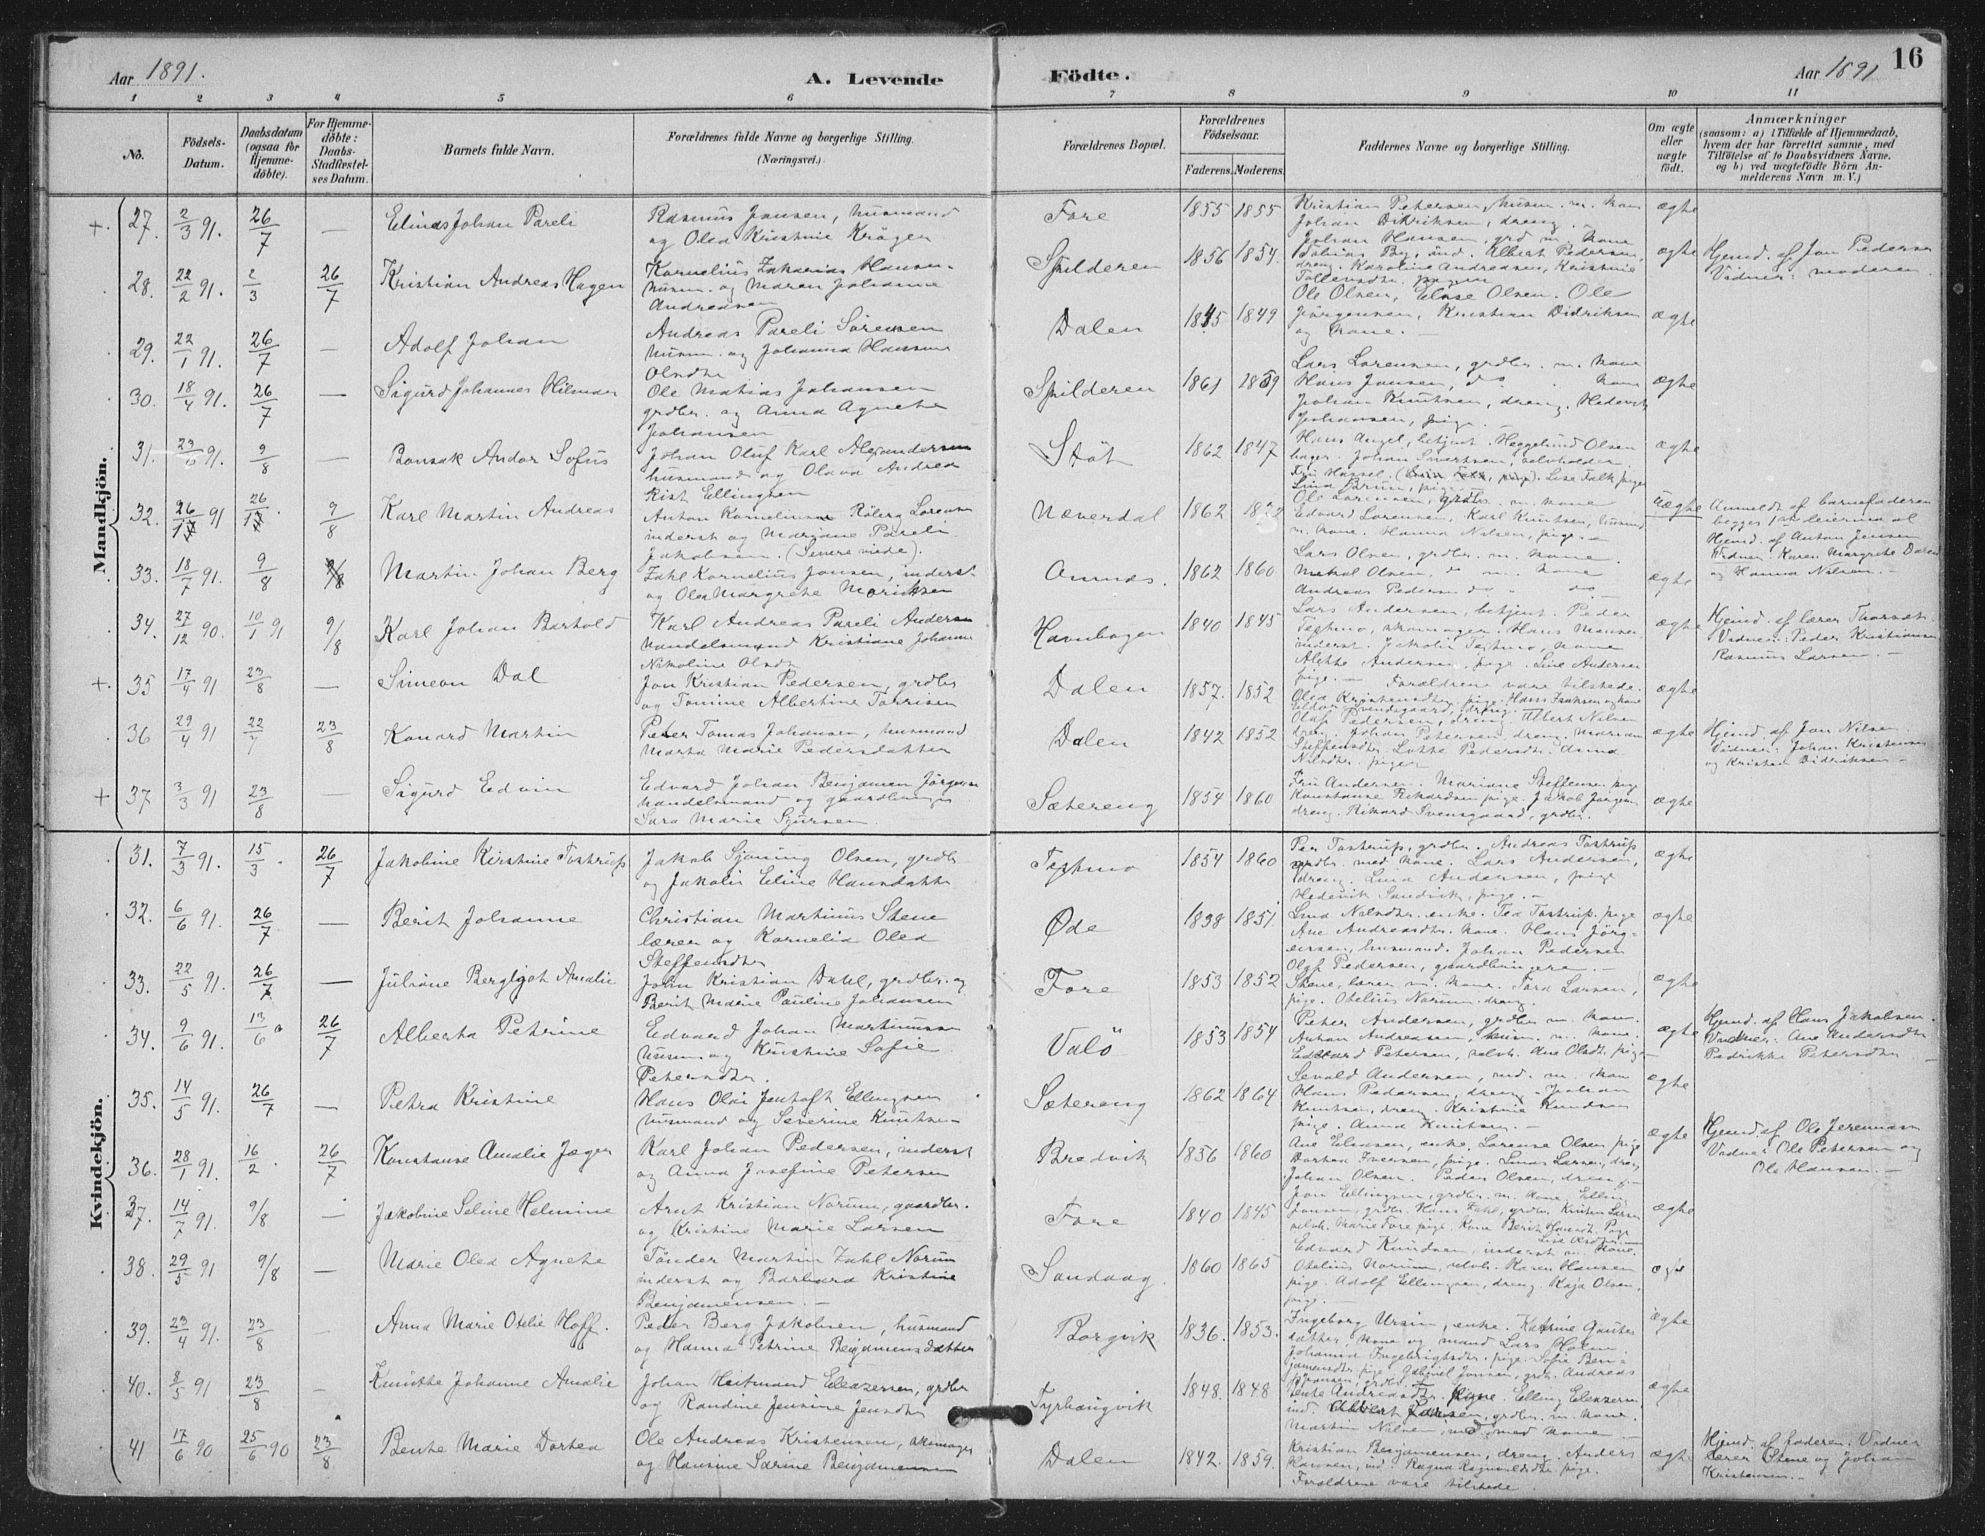 16
Aar 1891.
A. Levende
Födte.
Aar 1891
1 2 3 4 5 6 7 8 9 10 11
No.
Födsels-Datum.
Daabsdatum (ogsaa for Hjemme-döbte).
For Hjemme-döbte: Daabs-Stadfæstel-ses Datum.
Barnets fulde Navn.
Forældrenes fulde Navne og borgerlige Stilling. (Næringsvei.)
Forældrenes Bopæl.
Forældrenes Födselsaar.
Faderens. Moderens.
Faddernes Navne og borgerlige Stilling.
Om ægte eller uægte födt.
Anmærkninger
(saasom: a) i Tilfælde af Hjemmedaab, hvem der har forrettet samme, med Tilföielse af to Daabsvidners Navne, og b) ved uægtefödte Börn An-melderens Navn m. V.)
Mandkjön.
+ 27. 2/3 91. 26/7 — Elias Johan Pareli
Rasmus Jansen, husmand
og Olea Kristine Krøger
Fore 1855 1855
Kristian Petersen, husm. m. kone
Johan Didriksen, dreng. -
ægte
28. 22/2 91. 2/3 26/7 Kristian Andreas Hagen
Kornelius Zakarias Hansen
husm. og Maren Johanna
Andreasen
Spilderen 1856 1854.
Johan Hansen, grd m. kone
Tobias By, ind. Albert Pedersen,
dreng. Karoline Andreasen, Kristine
ægte
Hjemd. af Jon Pedersen
Vidner: moderen
29. 22/1 91. 26/7 — Adolf Johan
Andreas Pareli Sörensen
husm. og Johanna Hansine
Olsdtr
Dalen 1845 1849
Ole Olsen, Elise Olsen. Ole
Jørgensen, Kristian Didriksen
og kone. —
ægte
30. 18/4 91. 26/7 — Sigurd Johannes Hilmar
Ole Matias Johansen
grdbr. og Anna Agnethe
Johansen
Spilderen 1861 1859
Lars Lorensen, grdbr. m. kone
Hans Jansen, do . kone
Johan Knutsen, dreng. Hedevik
Johansen, pige. —
ægte
31. 23/6 91. 9/8 — Bonsak Andor Sofus
Johan Oluf Karl Alexandersen
husmand og Olava Andrea
Kist Ellingsen
Støt 1862 1847
Hans Angel, betjent. Heggelund Olsen
ægte
32. 26/12 91 26/12. 9/8 Karl Martin Andreas
Anton Kornelius Røberg Lorensen
inderst og Mariane Pareli
Jakobsen.
Næverdal 1862
Ole Lorensen, grdbr. m. kone
Edvard Lorensen, Karl Knutsen, husmd
m. kone. Hanna Nilsen, pige. —
uægte
Anmeldt af barnefaderen
begges 1ste leiermaal
Hjemd. af Anton Jensen
Vidner. Karen Margrete Dalen
og Hanna Nilsen. —
33. 18/7 91. 9/8 Martin Johan Berg
Zahl Kornelius Jonsen, inderst
og Olea Margrethe Moriksen
Amnes. 1862 1860
Lars Olsen, grdbr. m. kone
Mekal Olsen, do m. kone
Andreas Pedersen do " do
ægte
34. 27/12 90. 10/1 91 9/8 Karl Johan Bartold
Karl Andreas Pareli Andersen
Handelsmand Kristiane Johanne
Nikoline Olsdtr
Havnhagen 1840 1845
Lars Andersen, betjent. Peder
Teghmo, skomager. Hans Monsen
inderst. Jakobie Teghmo, kone
Alette Andersen, pige. Line Andersen
pige. —
ægte
Hjemd. af lærer Thorset.
Vidner: Peder Kristiansen
Rasmus Larsen. —
+. 35 17/4 91 23/8 — Simeon Dal
Jon Kristian Pedersen, grdbr
og Tomine Albertine Torrisen
Dalen 1857. 1852
Forældrene vare tilstede.
ægte
36 29/4 91 22/7 23/8 Konard Martin
Peder Tomas Johansen, husmand
Marta Marie Pedersdatter
Dalen 1842 1852
Olaf Pedersen, dreng. Albert Nilsen
dreng. Johan Petersen dreng. Marian
Steffensdtr. Lotte Pedersdtr. Anna
Nilsdtr. piger
ægte
Hjemd. af Jon Nilsen
Vidner. Johan Kristensen
og Kristen Didriksen —
+ 37 3/3 91 23/8 — Sigurd Edvin
Edvard Johan Benjamin Jörgensen
handelsmand og gaardbruger
Sara Marie Sjursen
Sætereng 1854 1860
Fru Andersen. Mariane Steffensen pige
Konstanse Rikardsen pige. Jakob Jørgensen
dreng. Rikard Svensgaard, grdbr.
ægte
Kvindekjön.
31. 7/3 91. 15/3. 26/7 Jakobine Kirstine Tostrup
Jakob Sjøning Olsen, grdbr
og Jakobie Eline Hansdatter
Teghmo 1854 1860
Per Tostrup, grdbr. Andreas Tostrup
grdbr. med kone. Lars Andersen,
dreng. Lina Andersen, pige
Hedevik Sandvik, pige. —
ægte
32. 6/6 91. 26/7 — Berit Johanne
Christian Martinus Stene
lærer og Kornelia Olea
Steffensdtr
Øde 1838 1851
Lina Nilsdtr. enke. Tea Tostrup. pige
Ane Andreasdtr. kone. Hans Jörg-
ensen, husmand. Johan Pedersen
Olaf Pedersen, gaardbrugere. —
ægte
33. 22/5 91. 26/7 — Juliane Bergljot Amalie
John Kristian Dahl, grdbr. og
Berit Marie Pauline Johansen
Fore 1853 1852
Stene, lærer m. kone. Tora Larsen,
pige. Otelius Norum. dreng.
ægte
34. 9/6 91. 13/6 26/7 Alberta Petrine
Edvard Johan Martinussen
husm. og Kristine Sofie
Petersdtr.
Valö 1853 1854
Peter Andersen, grdbr m. kone.
Anton Andreassen, husm. m. kone.
Edevard Petersen, selvb. Ane Olsdtr. pige
ægte
Hjemd. af Hans Jakobsen.
Vidner: Ane Andersdtr
Pedrikke Petersdtr —
35. 14/5 91. 26/7 — Petra Kristine
Hans Olai Jentoft Ellingsen
husmand og Severine Knutsen
Sætereng 1862 1864
Sevald Andersen, ind. m. kone
Hans Pedersen, dreng. Johan
Knutsen, dreng. Kristine Knudsen
pige. Anna Knutsen. —
ægte
36. 28/1 91. 16/2. 26/7 Konstanse Amalie Jæger
Karl Johan Pedersen, inderst
og Anna Josefine Petersen
Bredvik 1856 1860
Ane Eliasen, enke. Lorense Olsen pige
Dortea Iversen, pige. Linas Larsen, dreng
Johan Olsen. Peder Olsen, drenge
ægte
Hjemd af Ole Jeremiasen
Vidner Ole Petersen og
Ole Hansen. —
37. 14/7 91. 9/8 — Jakobine Seline Helmine
Arnt Kristian Norum, gaardbr.
og Kristine Marie Larsen
Fore 1840 1845
Jon Ellingsen, grdbr. m. kone, Elling
Jonsen, grdbr. Hans Zahl, grdbr. Kristen Larsen
ægte
38. 29/5 91 9/8 — Marie Olea Agnete
Tönder Martin Zahl Norum
inderst og Barbara Kristine
Benjamensen. —
Sandaag. 1860 1865
Edvard Knudsen, inderst m. kone.
Otelius Norum, selvb. Karen Hansen
pige. Adolf Ellingsen, dreng. Kaja Olsen,
pige. —
ægte
39. 23/4 91. 23/8 — Anna Marie Otelie Hoff.
Peder Berg Jakobsen, husmand
og Hanna Petrine Benjamensdatter
Borgvik 1836. 1853.
Ingeborg Ursin, enke. Katrine Gautes
datter, kone og mand Lars Holm.
Johanna Ingebrigtsdtr. pige. Sofie Ben-
jamensdtr. pige.
ægte
40. 8/5 91 23/8 — Knutte Johanne Amalie
Johan Heitmand Eleazersen, grdbr
og Randine Jensine Jensdtr
Tyrhaugvik 1848. 1848
Bente Andreasdtr. pigne. Elling Eleazersen
ind. Albert Larsen, grdbr. m. kone.
Martin Nilsen, ind. med kone —
ægte
41 17/6 90 25/6 90 23/8 Bente Marie Dortea
Ole Andreas Kristensen, skomager
og Hansine Sarine Benjamensen
Dalen 1842. 1859.
Kristian Benjamensen, dreng. Anders
Hansen, ind. Ragna Ragnvaldsdtr. pige.
Forældrene vare tilstede.
ægte
Hjemd. af faderen. Vidner
lærer Stene og Johan
Kristensen. —